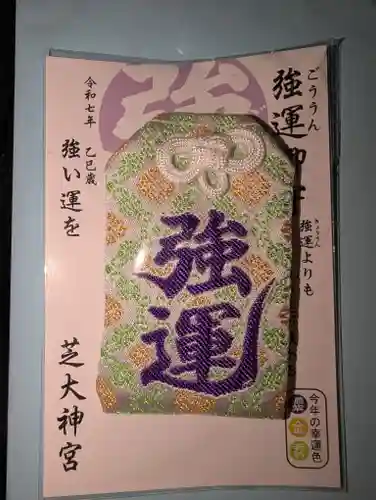 強運御守
ごううん
強運よりも
きょううん
強い運を
令和七年 乙巳歳
芝大神宮
強運
今年の幸運色
金